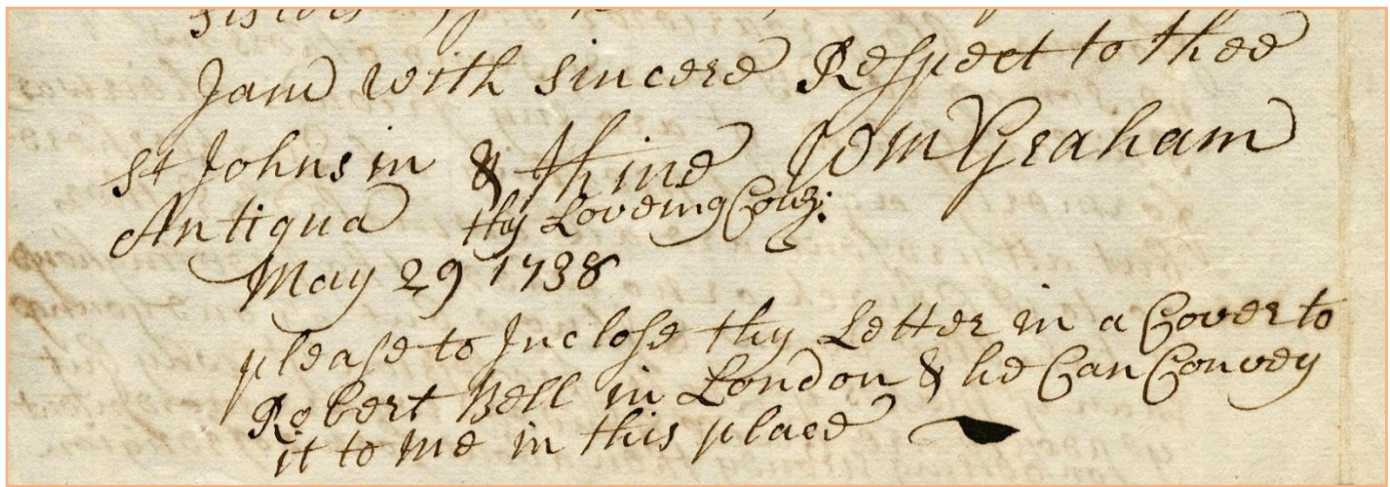 I am with sincere Respect to thee
& thine Wm Graham
St Johns in
Antigua thy Loveing Couz:
May 29 1738
please to Inclose thy Letter in a Cover to
Robert Bell in London & he Can Convey
it to me in this place